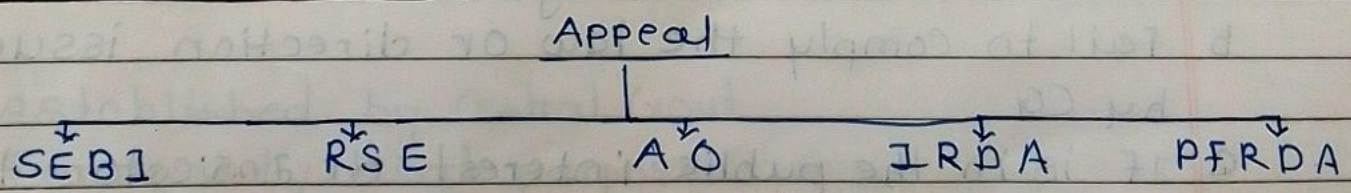 Appeal
SEBI RSE AO IRDA PFRDA